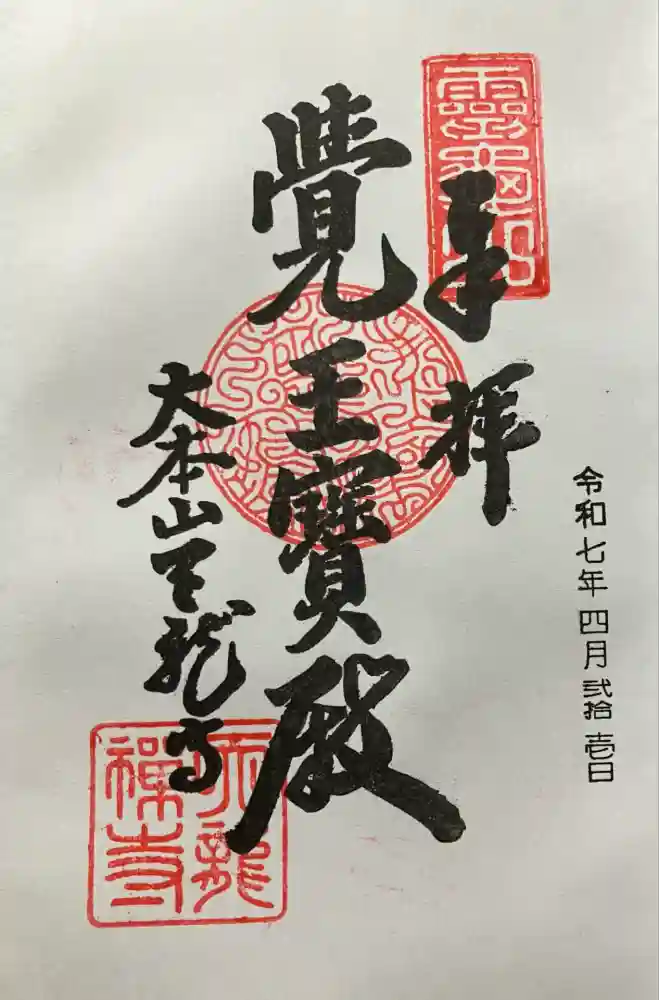 令和七年四月弐拾壱日
奉拝
覺王寶殿
大本山天龍寺
霊亀山
天龍
禅寺